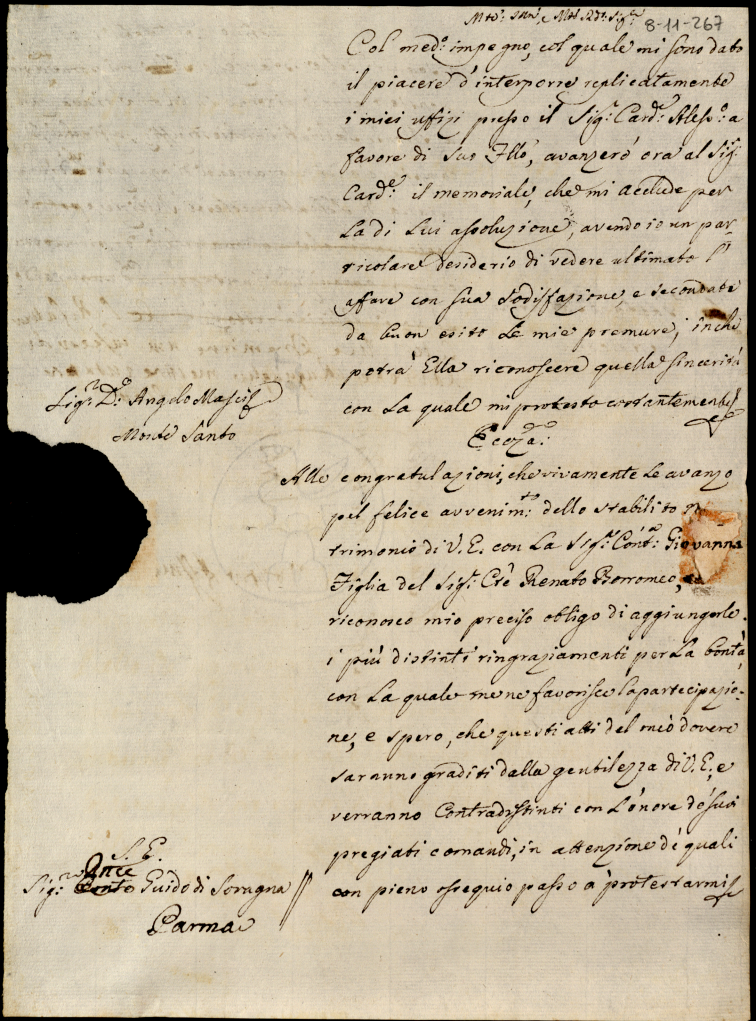 8-11-267
Col med.o impegno, col quale mi sono dato
il piacere d'interporre replicatamente
i miei uffizj presso il Sig.r Card.e Aless.o a
favore di suo Fllo, avanzerò ora al Sig.r
Card.e il memoriale, che mi acclude per
la di lui assoluzione, avendo io un par-
ticolare desiderio di vedere ultimato l'
affare con sua sodisfazione, e secondate
da buon esito le mie premure; in che
potrà Ella riconoscere quella sincerità
con la quale mi protesto costantemente
Sig.r D.o Angelo Mascij
Monte Santo
Ecc.za:
Alle congratulazioni, che vivamente le avanzo
pel felice avvenim.to dello stabilito
trimonio di V. E. con la Sig.ra Cont.a Giovanna
Figlia del Sig.r Cte Renato Borromeo,
riconosco mio preciso obligo di aggiungerle
i più distinti ringraziamenti per la bontà,
con la quale me ne favorisce la partecipazio-
ne, e spero, che questi atti del mio dovere
saranno graditi dalla gentilezza di V. E., e
verranno contradistinti con l'onore de' suoi
pregiati comandi, in attenzione de' quali
con pieno ossequio passo a protestarmi
S. E.
Sig.r Guido di Soragna
Parma